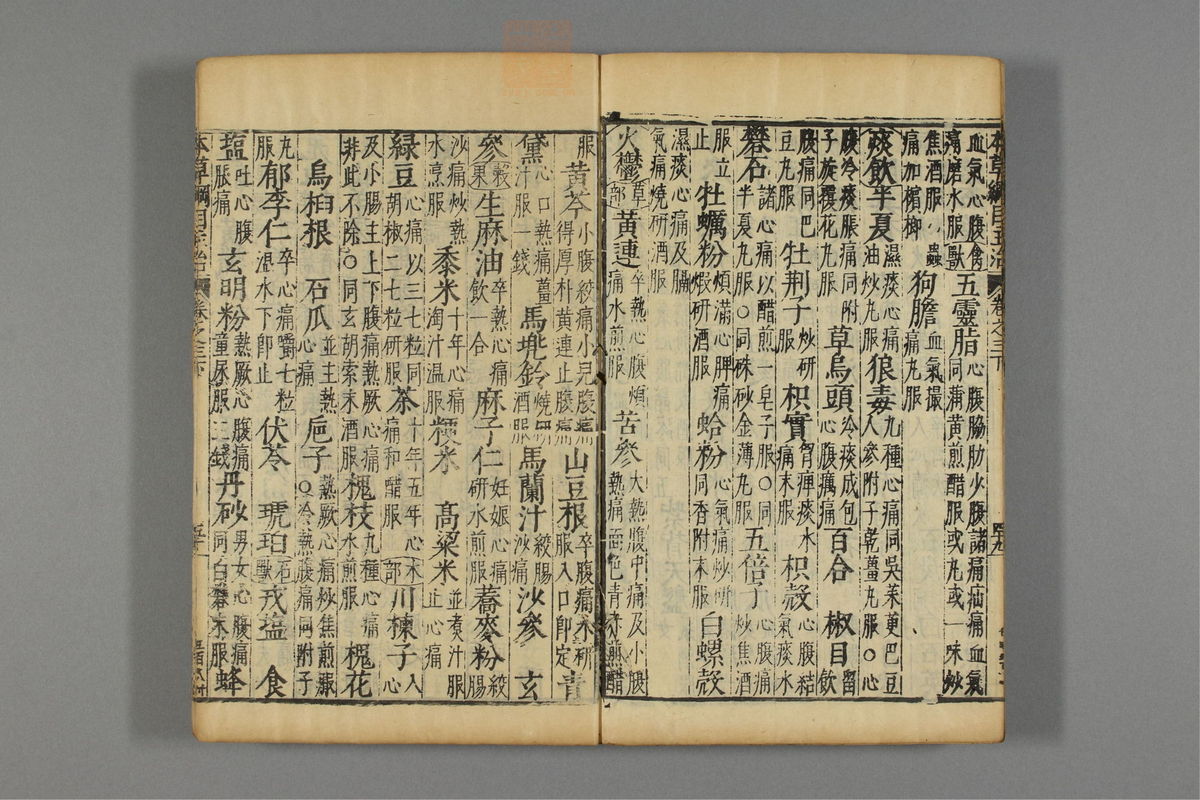 本草綱目主治 卷之三下
血氣心腹食滯磨水服獸五靈脂心腹脇肋少腹諸痛疝痛血氣同蒲黃煎醋服或丸或一味炒
焦酒服○蟲痛加檳榔狗膽血氣撮痛丸服
痰飲半夏濕痰心痛油炒丸服狼毒九種心痛同吳茱萸巴豆人參附子乾薑丸服○心
腹冷痰脹痛同附子旋覆花丸服草烏頭冷痰成包心腹㽲痛百合 椒目留飲
腹痛同巴豆丸服牡荆子炒研服枳實胷痺痰水痛末服枳殼心腹結氣痰水
礬石諸心痛以醋煎一皂子服○同半夏丸服○同硃砂金薄丸服五倍子心腹痛炒焦酒
服立止牡蠣粉煩滿心脾痛煆研酒服蛤粉心氣痛炒研同香附末服白螺殼
濕痰心痛及膈氣痛燒研酒服
火鬱草部黃連卒熱心腹煩痛水煎服苦參大熱腹中痛及小腹熱痛面色青赤煎醋
服黃芩小腹絞痛小兒腹痛得厚朴黃連止腹痛山豆根卒腹痛水研服入口即定青
黛心口熱痛薑汁服一錢馬兜鈴燒研酒服馬蘭汁絞腸沙痛沙參 玄
參穀果生麻油卒熱心痛飲一合麻子仁妊娠心痛研水煎服蕎麥粉絞腸
沙痛炒熱水烹服黍米十年心痛淘汁温服粳米 高粱米並煮汁服止心痛
緑豆心痛以三七粒同胡椒二七粒研服茶十年五年心痛和醋服木部川楝子入心
及小腸主上下腹痛熱厥心痛非此不除○同玄胡索末酒服槐枝九種心痛水煎服槐花
烏桕根 石瓜並主熱心痛巵子熱厥心痛炒焦煎服○冷熱腹痛同附子
丸服郁李仁卒心痛嚼七粒温水下即止伏苓 琥珀石獸戎塩 食
塩吐心腹脹痛玄明粉熱厥心腹痛童尿服三錢丹砂男女心腹痛同白礬末服蜂